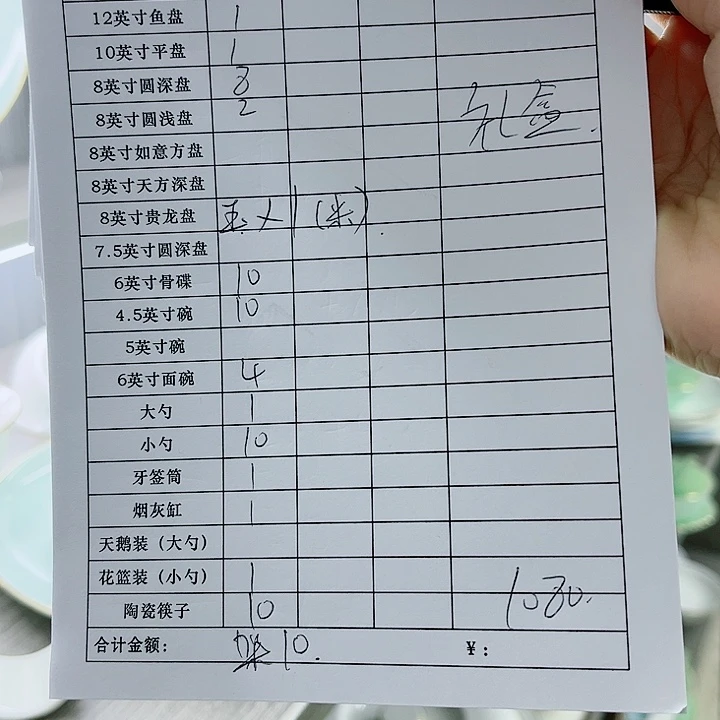 12英寸鱼盘 1
10英寸平盘 1
8英寸圆深盘 8
8英寸圆浅盘 2 礼盒.
8英寸如意方盘
8英寸天方深盘
8英寸贵龙盘
7.5英寸圆深盘
6英寸骨碟 10
4.5英寸碗 10
5英寸碗
6英寸面碗 4
大勺 1
小勺 10
牙签筒 1
烟灰缸 1
天鹅装（大勺）
花篮装（小勺） 1
陶瓷筷子 10 1080.
合计金额： 10. ¥：